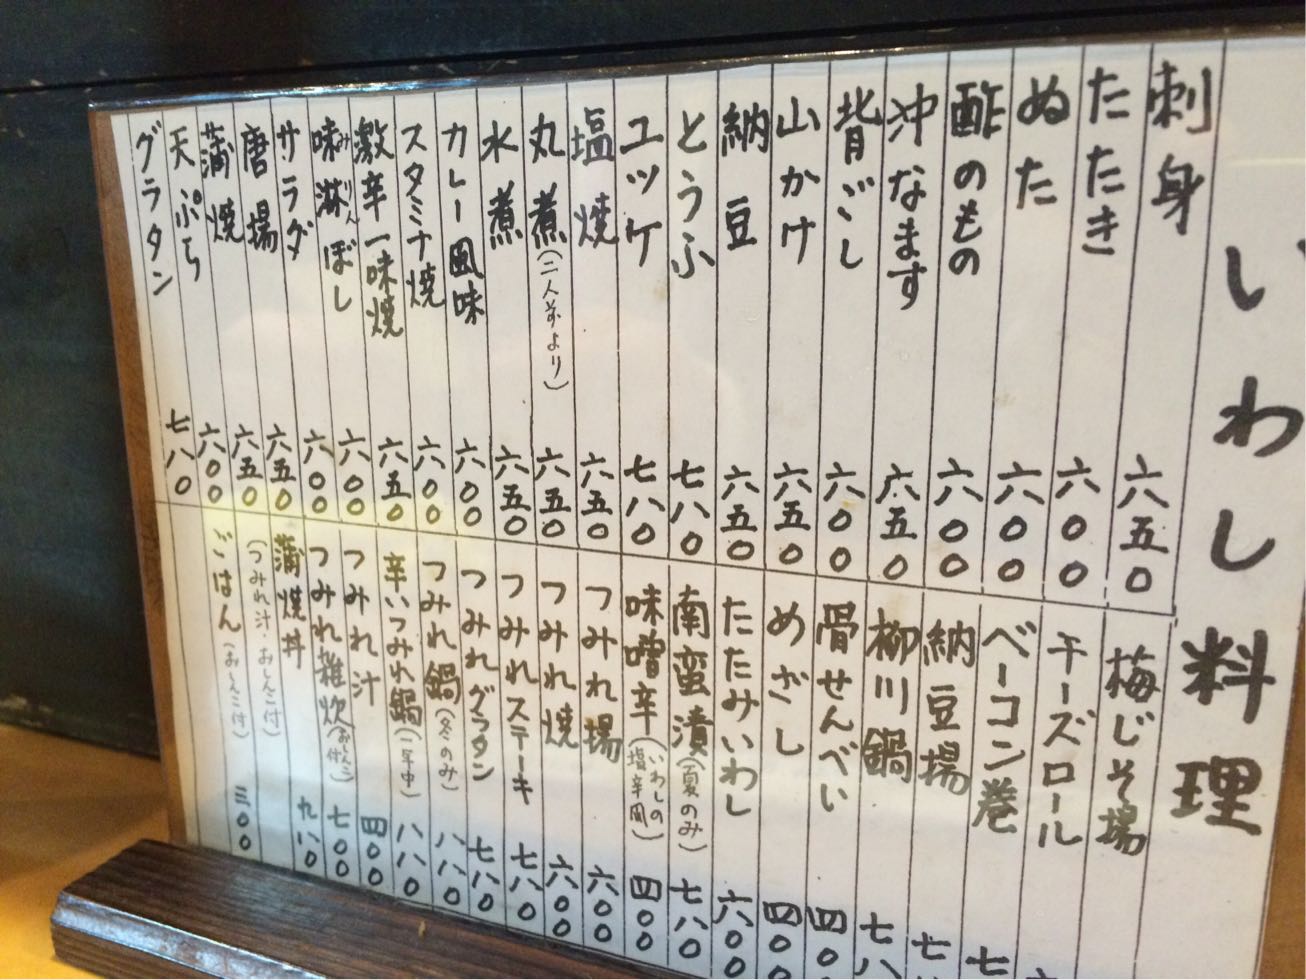 いわし料理
刺身 六五〇
たたき 六〇〇
ぬた 六〇〇
酢のもの 六〇〇
沖なます 六五〇
背ごし 六〇〇
山かけ 六五〇
納豆 六五〇
とうふ 七八〇
ユッケ 七八〇
塩焼 六五〇
丸煮(二人前より) 六五〇
水煮 六五〇
カレー風味 六〇〇
スタミナ焼 六〇〇
激辛一味焼 六五〇
味淋ぼし みりん 六〇〇
サラダ 六〇〇
唐揚 六五〇
蒲焼 六五〇
天ぷら 六〇〇
グラタン 七八〇
梅じそ揚
チーズロール
ベーコン巻 七
納豆揚 七
柳川鍋 七八
骨せんべい 四〇〇
めざし 四〇〇
たたみいわし 六〇〇
南蛮漬(夏のみ) 七八〇
味噌辛(いわしの塩辛風) 四〇〇
つみれ揚 六〇〇
つみれ焼 六〇〇
つみれステーキ 七八〇
つみれグラタン 七八〇
つみれ鍋(冬のみ) 八八〇
辛いつみれ鍋(一年中) 八八〇
つみれ汁 四〇〇
つみれ雑炊(おしんこ付) 七〇〇
蒲焼丼 九八〇
(つみれ汁・おしんこ付)
ごはん(おしんこ付) 三〇〇